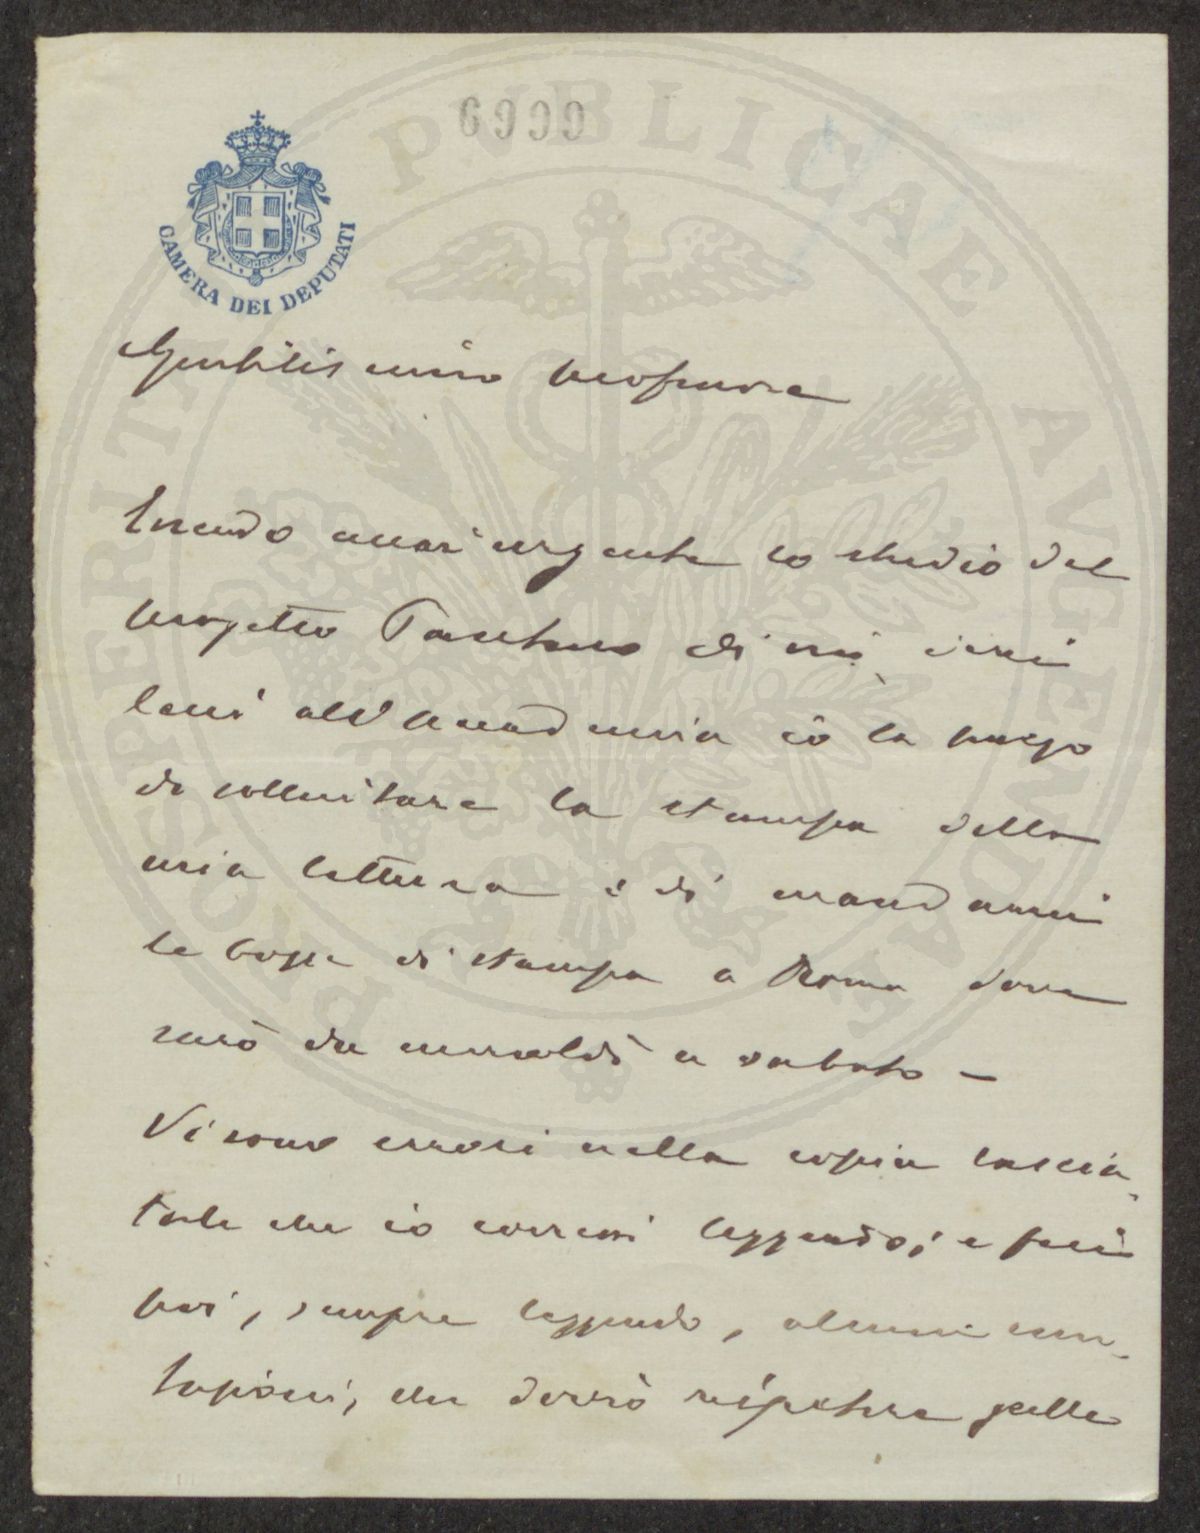 6999
CAMERA DEI DEPUTATI
PROSPERITATI PVBLICAE AVGENDAE
Gentilissimo professore
Essendo assai urgente lo studio del
progetto di cui
lessi all'Accademia io la prego
di sollecitare la stampa della
mia lettura e di mandarmi
le bozze di stampa a Roma dove
sarò da mercoldì a sabato -
Vi sono errori nella copia lascia-
tale che io corressi leggendo; e feci
poi, sempre leggendo, alcune
che dovrò ripetere nelle